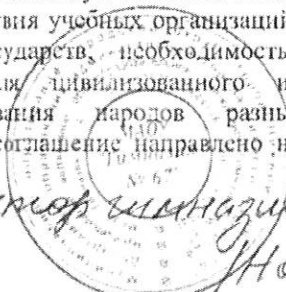 твия учебных организаций
сударств, необходимость
ля цивилизованного и
вания народов разны
соглашение направлено н
гимназии